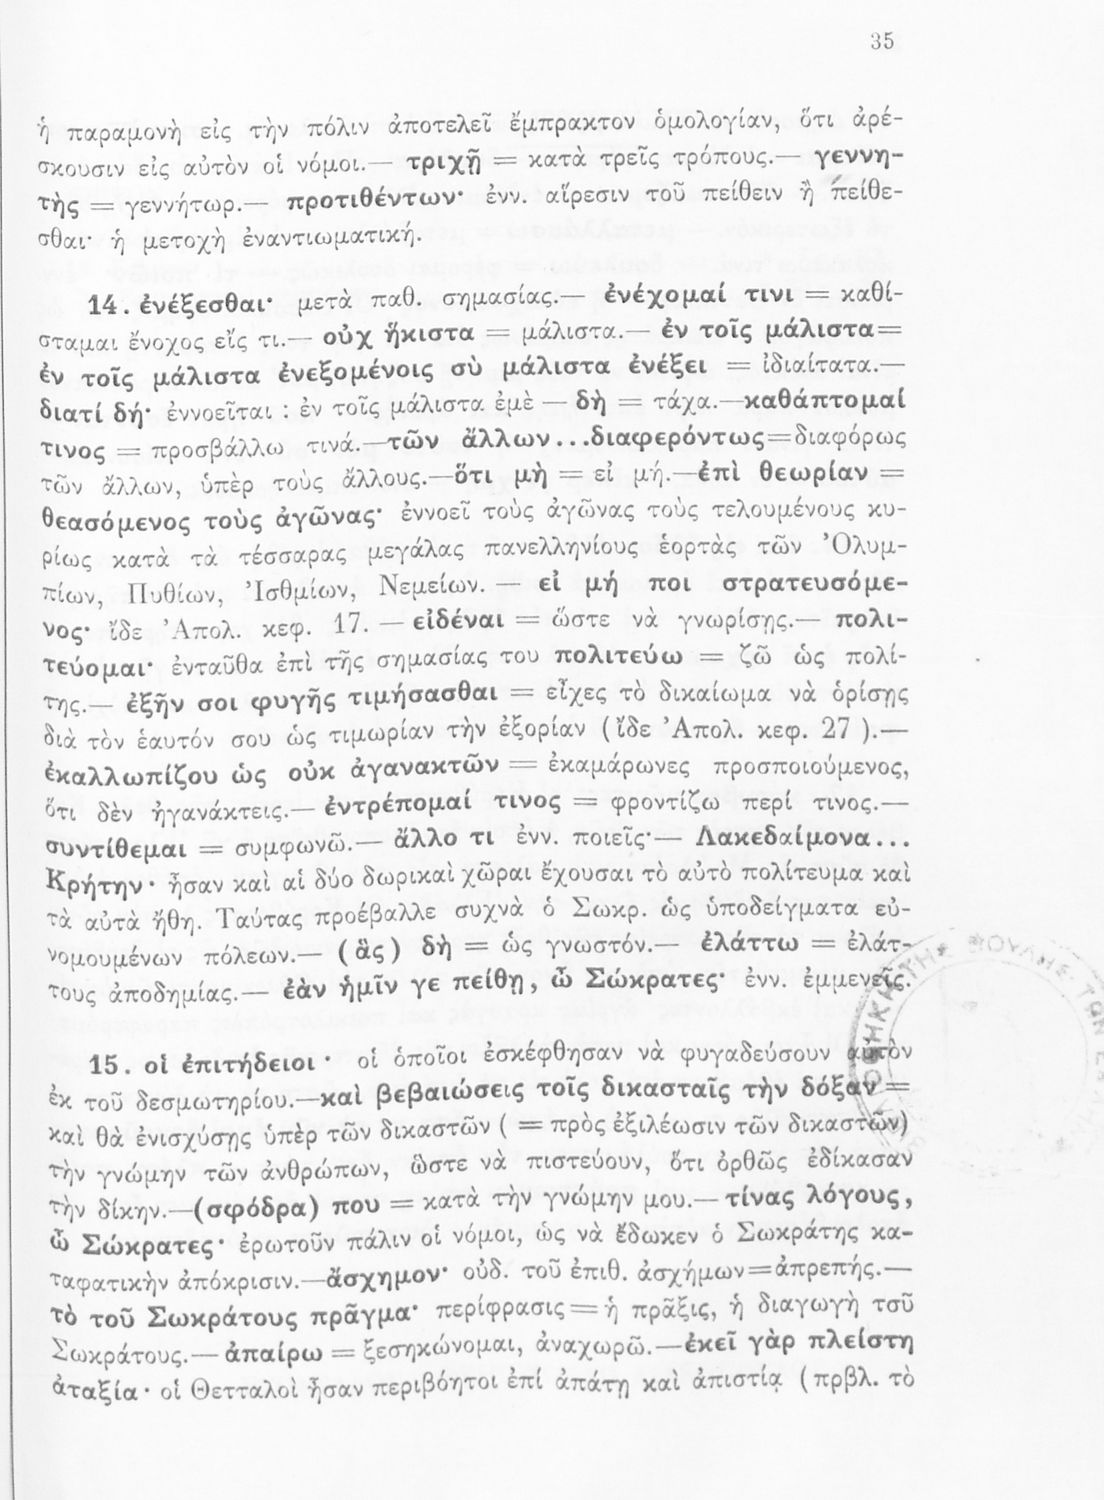 35
ἡ παραμονὴ εἰς τὴν πόλιν ἀποτελεῖ ἔμπρακτον ὁμολογίαν, ὅτι ἀρέ-
σκουσιν εἰς αὐτὸν οἱ νόμοι.— τριχῇ = κατὰ τρεῖς τρόπους.— γεννη-
τὴς = γεννήτωρ.— προτιθέντων· ἐνν. αἵρεσιν τοῦ πείθειν ἢ πείθε-
σθαι· ἡ μετοχὴ ἐναντιωματική.
14. ἐνέξεσθαι· μετὰ παθ. σημασίας.— ἐνέχομαί τινι = καθί-
σταμαι ἔνοχος εἴς τι.— οὐχ ἥκιστα = μάλιστα.— ἐν τοῖς μάλιστα=
ἐν τοῖς μάλιστα ἐνεξομένοις σὺ μάλιστα ἐνέξει = ἰδιαίτατα.—
διατί δή· ἐννοεῖται : ἐν τοῖς μάλιστα ἐμὲ — δὴ = τάχα.—καθάπτομαί
τινος = προσβάλλω τινά.—τῶν ἄλλων...διαφερόντως=διαφόρως
τῶν ἄλλων, ὑπὲρ τοὺς ἄλλους.—ὅτι μὴ = εἰ μή.—ἐπὶ θεωρίαν =
θεασόμενος τοὺς ἀγῶνας· ἐννοεῖ τοὺς ἀγῶνας τοὺς τελουμένους κυ-
ρίως κατὰ τὰ τέσσαρας μεγάλας πανελληνίους ἑορτὰς τῶν Ὀλυμ-
πίων, Πυθίων, Ἰσθμίων, Νεμείων. — εἰ μή ποι στρατευσόμε-
νος· ἴδε Ἀπολ. κεφ. 17. — εἰδέναι = ὥστε νὰ γνωρίσῃς.— πολι-
τεύομαι· ἐνταῦθα ἐπὶ τῆς σημασίας του πολιτεύω = ζῶ ὡς πολί-
της.— ἐξῆν σοι φυγῆς τιμήσασθαι = εἶχες τὸ δικαίωμα νὰ ὁρίσῃς
διὰ τὸν ἑαυτόν σου ὡς τιμωρίαν τὴν ἐξορίαν (ἴδε Ἀπολ. κεφ. 27 ).—
ἐκαλλωπίζου ὡς οὐκ ἀγανακτῶν = ἐκαμάρωνες προσποιούμενος,
ὅτι δὲν ἠγανάκτεις.— ἐντρέπομαί τινος = φροντίζω περί τινος.—
συντίθεμαι = συμφωνῶ.— ἄλλο τι ἐνν. ποιεῖς·— Λακεδαίμονα...
Κρήτην· ἦσαν καὶ αἱ δύο δωρικαὶ χῶραι ἔχουσαι τὸ αὐτὸ πολίτευμα καὶ
τὰ αὐτὰ ἤθη. Ταύτας προέβαλλε συχνὰ ὁ Σωκρ. ὡς ὑποδείγματα εὐ-
νομουμένων πόλεων.— (ἃς) δὴ = ὡς γνωστόν.— ἐλάττω = ἐλάτ-
τους ἀποδημίας.— ἐὰν ἡμῖν γε πείθῃ, ὦ Σώκρατες· ἐνν. ἐμμενεῖς.
15. οἱ ἐπιτήδειοι · οἱ ὁποῖοι ἐσκέφθησαν νὰ φυγαδεύσουν αὐτὸν
ἐκ τοῦ δεσμωτηρίου.—καὶ βεβαιώσεις τοῖς δικασταῖς τὴν δόξαν =
καὶ θὰ ἐνισχύσῃς ὑπὲρ τῶν δικαστῶν ( = πρὸς ἐξιλέωσιν τῶν δικαστῶν)
τὴν γνώμην τῶν ἀνθρώπων, ὥστε νὰ πιστεύουν, ὅτι ὀρθῶς ἐδίκασαν
τὴν δίκην.—(σφόδρα) που = κατὰ τὴν γνώμην μου.— τίνας λόγους,
ὦ Σώκρατες· ἐρωτοῦν πάλιν οἱ νόμοι, ὡς νὰ ἔδωκεν ὁ Σωκράτης κα-
ταφατικὴν ἀπόκρισιν.—ἄσχημον· οὐδ. τοῦ ἐπιθ. ἀσχήμων=ἀπρεπής.—
τὸ τοῦ Σωκράτους πρᾶγμα· περίφρασις=ἡ πρᾶξις, ἡ διαγωγὴ τοῦ
Σωκράτους.— ἀπαίρω = ξεσηκώνομαι, ἀναχωρῶ.—ἐκεῖ γὰρ πλείστη
ἀταξία· οἱ Θετταλοὶ ἦσαν περιβόητοι ἐπί ἀπάτῃ καὶ ἀπιστίᾳ (πρβλ. τὸ